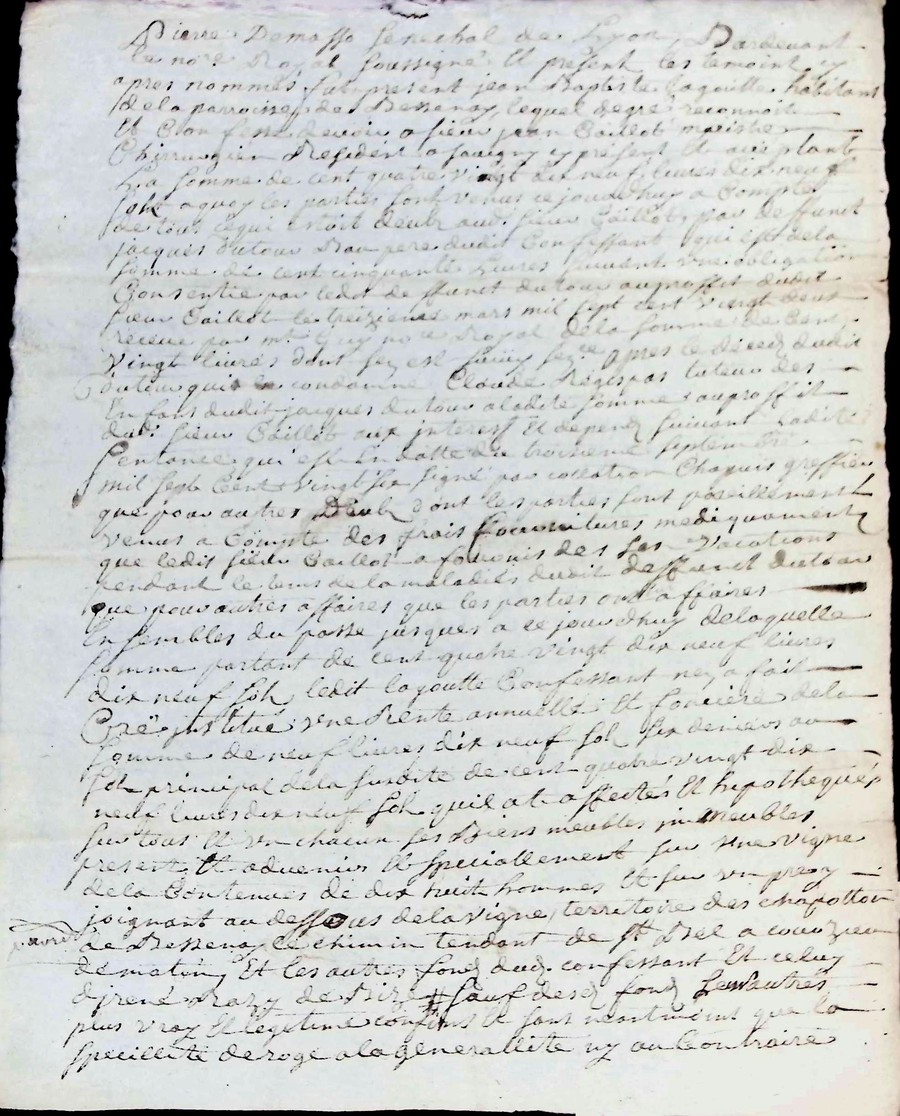 Pierre Demasso Senechal de Lyon, Pardevant
le no.re Royal soussigné Et présent les temoint cy
apres nommés fut present jean Baptiste Lagoutte habitant
de la parroisse de Bessenay, lequel degré reconnoit
Et Confesse devoir a sieur jean Caillot maistre
Chirurgien Resident a savigny cy présent Et acceptant
La somme de cent quatre vingt dix neuf livres dix neuf
sols a quoy les parties sont venus ce jourdhuy a Compte
de tous ce qui etoit deub aud. sieur Caillot, par deffunct
jacques dutour Beau pere dudit Confessant qui est de la
somme de cent cinquante Livres suivant une obligation
Consentie par ledit deffunct dutour au proffit dudit
sieur Caillot le treizieme mars mil sept cent vingt deux
receue par m.e Guy no.re Royal de la somme de Cent
vingt livres dont sez est suivy sez.ce apres le decedz dudit
dutour qui condamne Claude Régipas tuteur des
Enfans dudit jacques dutour a ladite somme au proffit
dud. sieur Caillot aux interest Et depend suivant Ladite
sentance qui est En datte du troizieme septembre
mil sept Cent vingt six signé par collation Chapuis greffier
que pour autres Deub dont les parties sont pareillement
venus a Compte des frais fournitures medicquament
que ledit sieur Caillot a fournis des Les vacations
pendant le tems de la maladies dudit deffunct dutour
que pour autres affaires que les parties ont a ffaires
Ensembles du passe jusques a ce jourdhuy de laquelle
somme partant de cent quatre vingt dix neuf livres
dix neuf sols ledit lagoutte Confessant ny a fait
Créé institué une Rente annuelle Et fonciere de la
somme de neuf livres dix neuf sols six deniers au
sol principal de la susdite de cent quatre vingt dix
neuf livres dix neuf sols quil at affectés Et hipothequés
sur tous Et un chacun ses Biens meubles immeubles
present Et advenirs Et speciallement sur une vigne
de la Contenues de dix huit hommes Et sur un prez
joignant au dessous de la vigne, territoire des chapotton
de Bessenay, le chimin tendant de St Bel a courzieu
de matin, Et les autres fond dud. confessant Et celuy
direné Razy de Bize sauf desd fond Leurs autres
plus vray Et legitime confins Et sans neantmoint que la
specillité deroge a la generallité ny au Contraire